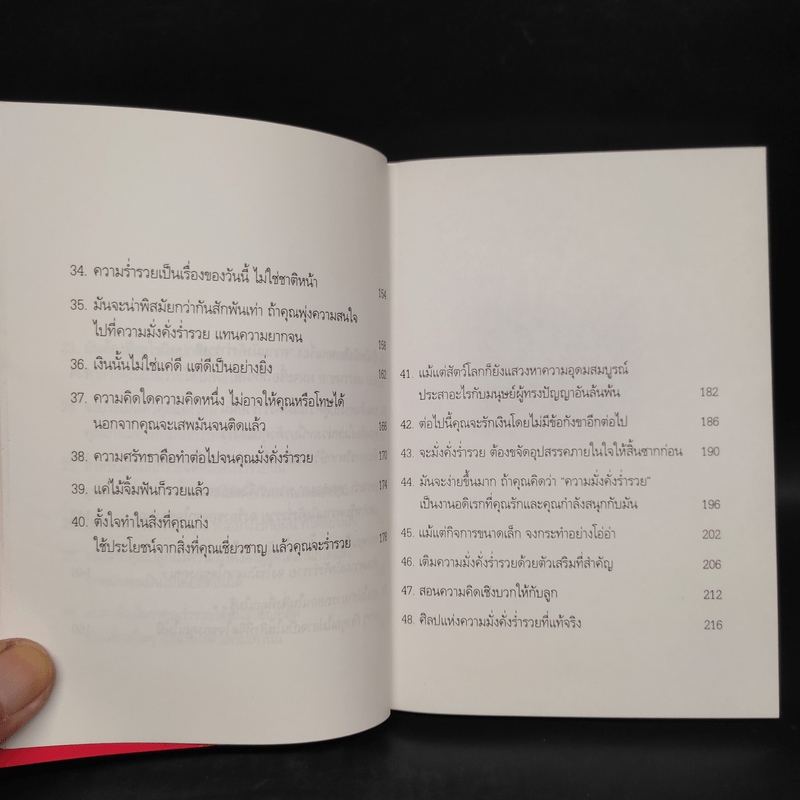 34. ความร่ำรวยเป็นเรื่องของวันนี้ ไม่ใช่ชาติหน้า 154
35. มันจะน่าพิสมัยกว่ากันสักพันเท่า ถ้าคุณพุ่งความสนใจ
ไปที่ความมั่งคั่งร่ำรวย แทนความยากจน 158
36. เงินนั้นไม่ใช่แค่ดี แต่ดีเป็นอย่างยิ่ง 162
37. ความคิดใดความคิดหนึ่ง ไม่อาจให้คุณหรือโทษได้
นอกจากคุณจะเสพมันจนติดแล้ว 166
38. ความศรัทธาคือทำต่อไปจนคุณมั่งคั่งร่ำรวย 170
39. แค่ไม้จิ้มฟันก็รวยแล้ว 174
40. ตั้งใจทำในสิ่งที่คุณเก่ง
ใช้ประโยชน์จากสิ่งที่คุณเชี่ยวชาญ แล้วคุณจะร่ำรวย 178
41. แม้แต่สัตว์โลกก็ยังแสวงหาความอุดมสมบูรณ์
ประสาอะไรกับมนุษย์ผู้ทรงปัญญาอันล้นพ้น 182
42. ต่อไปนี้คุณจะรักเงินโดยไม่มีข้อกังขาอีกต่อไป 186
43. จะมั่งคั่งร่ำรวย ต้องขจัดอุปสรรคภายในใจให้สิ้นซากก่อน 190
44. มันจะง่ายขึ้นมาก ถ้าคุณคิดว่า “ความมั่งคั่งร่ำรวย”
เป็นงานอดิเรกที่คุณรักและคุณกำลังสนุกกับมัน 196
45. แม้แต่กิจการขนาดเล็ก จงกระทำอย่างโอ่อ่า 202
46. เติมความมั่งคั่งร่ำรวยด้วยตัวเสริมที่สำคัญ 206
47. สอนความคิดเชิงบวกให้กับลูก 212
48. ศิลปแห่งความมั่งคั่งร่ำรวยที่แท้จริง 216